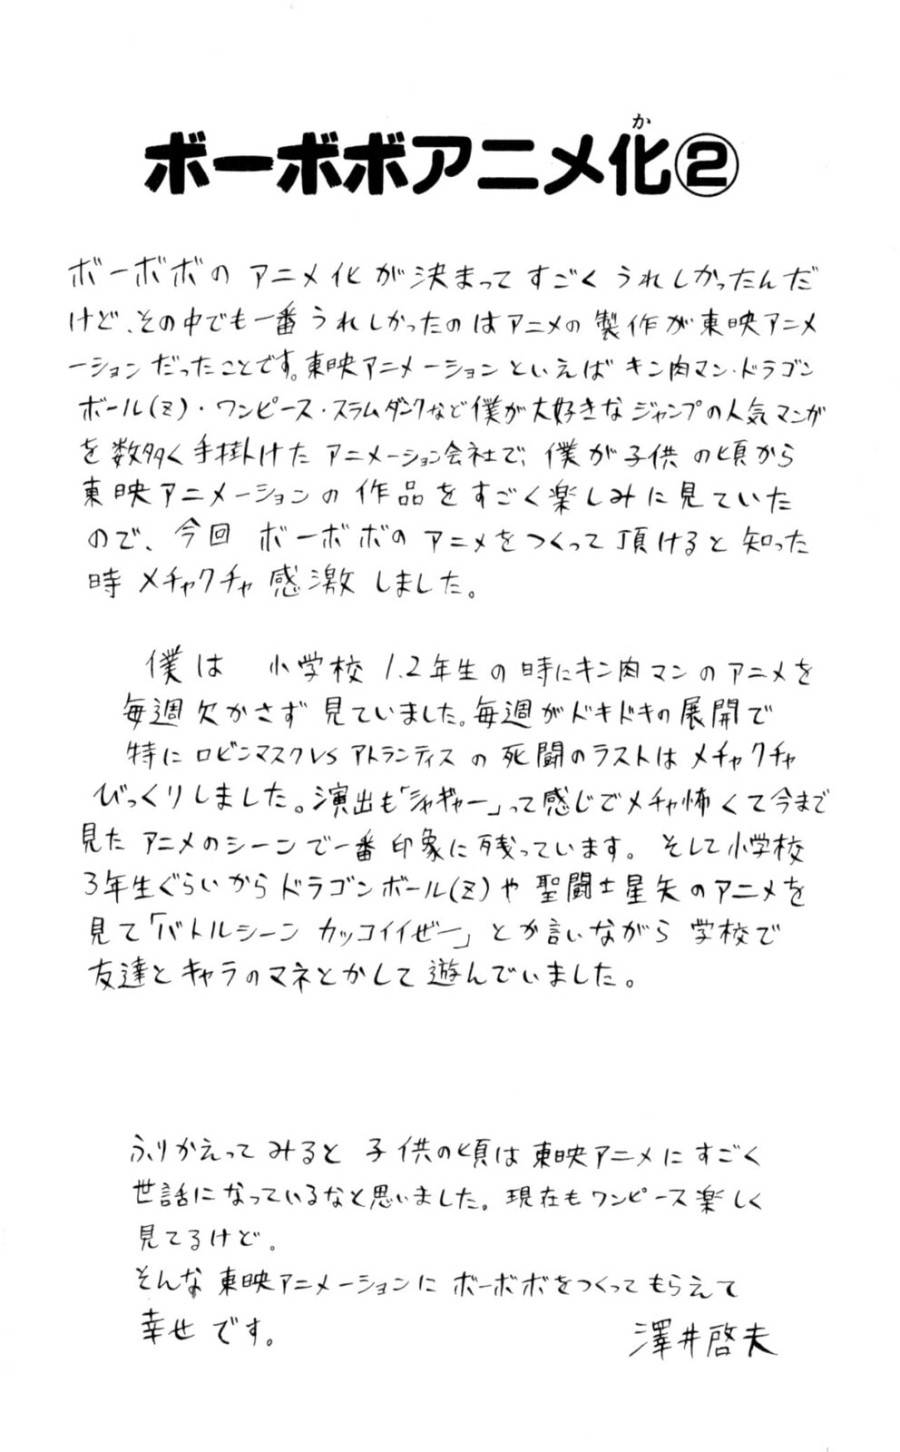 か
ボーボボアニメ化②
ボーボボの アニメ化が決まって すごく うれしかったんだ
けど、その中でも一番 うれしかったのは アニメの 製作が 東映アニメ
ーションだったことです。東映アニメーションといえば キン肉マン・ドラゴン
ボール(Z)・ワンピース・スラムダンクなど僕が大好きな ジャンプの人気マンガ
を 数多く 手掛けた アニメーション会社で、僕が子供 の頃から
東映アニメーションの 作品を すごく 楽しみに見ていた
ので、今回 ボーボボの アニメをつくって 頂けると 知った
時 メチャクチャ 感激 しました。
僕は 小学校 1.2年生の 時にキン肉マンの アニメを
毎週 欠かさず 見ていました。毎週がドキドキの展開で
特に ロビンマスクVS アトランティス の 死闘のラストは メチャクチャ
びっくりしました。演出も「シャギャー」って感じでメチャ怖くて今まで
見た アニメのシーンで一番 印象に残っています。そして小学校
3年生ぐらいからドラゴンボール(Z)や 聖闘士星矢のアニメを
見て「バトルシーン カッコイイぜー」とか言いながら 学校で
友達と キャラのマネとかして 遊んでいました。
ふりかえって みると 子供の頃は 東映アニメに すごく
世話になっているなと思いました。現在もワンピース楽しく
見てるけど。
そんな 東映アニメーションに ボーボボをつくって もらえて
幸せです。
澤井啓夫